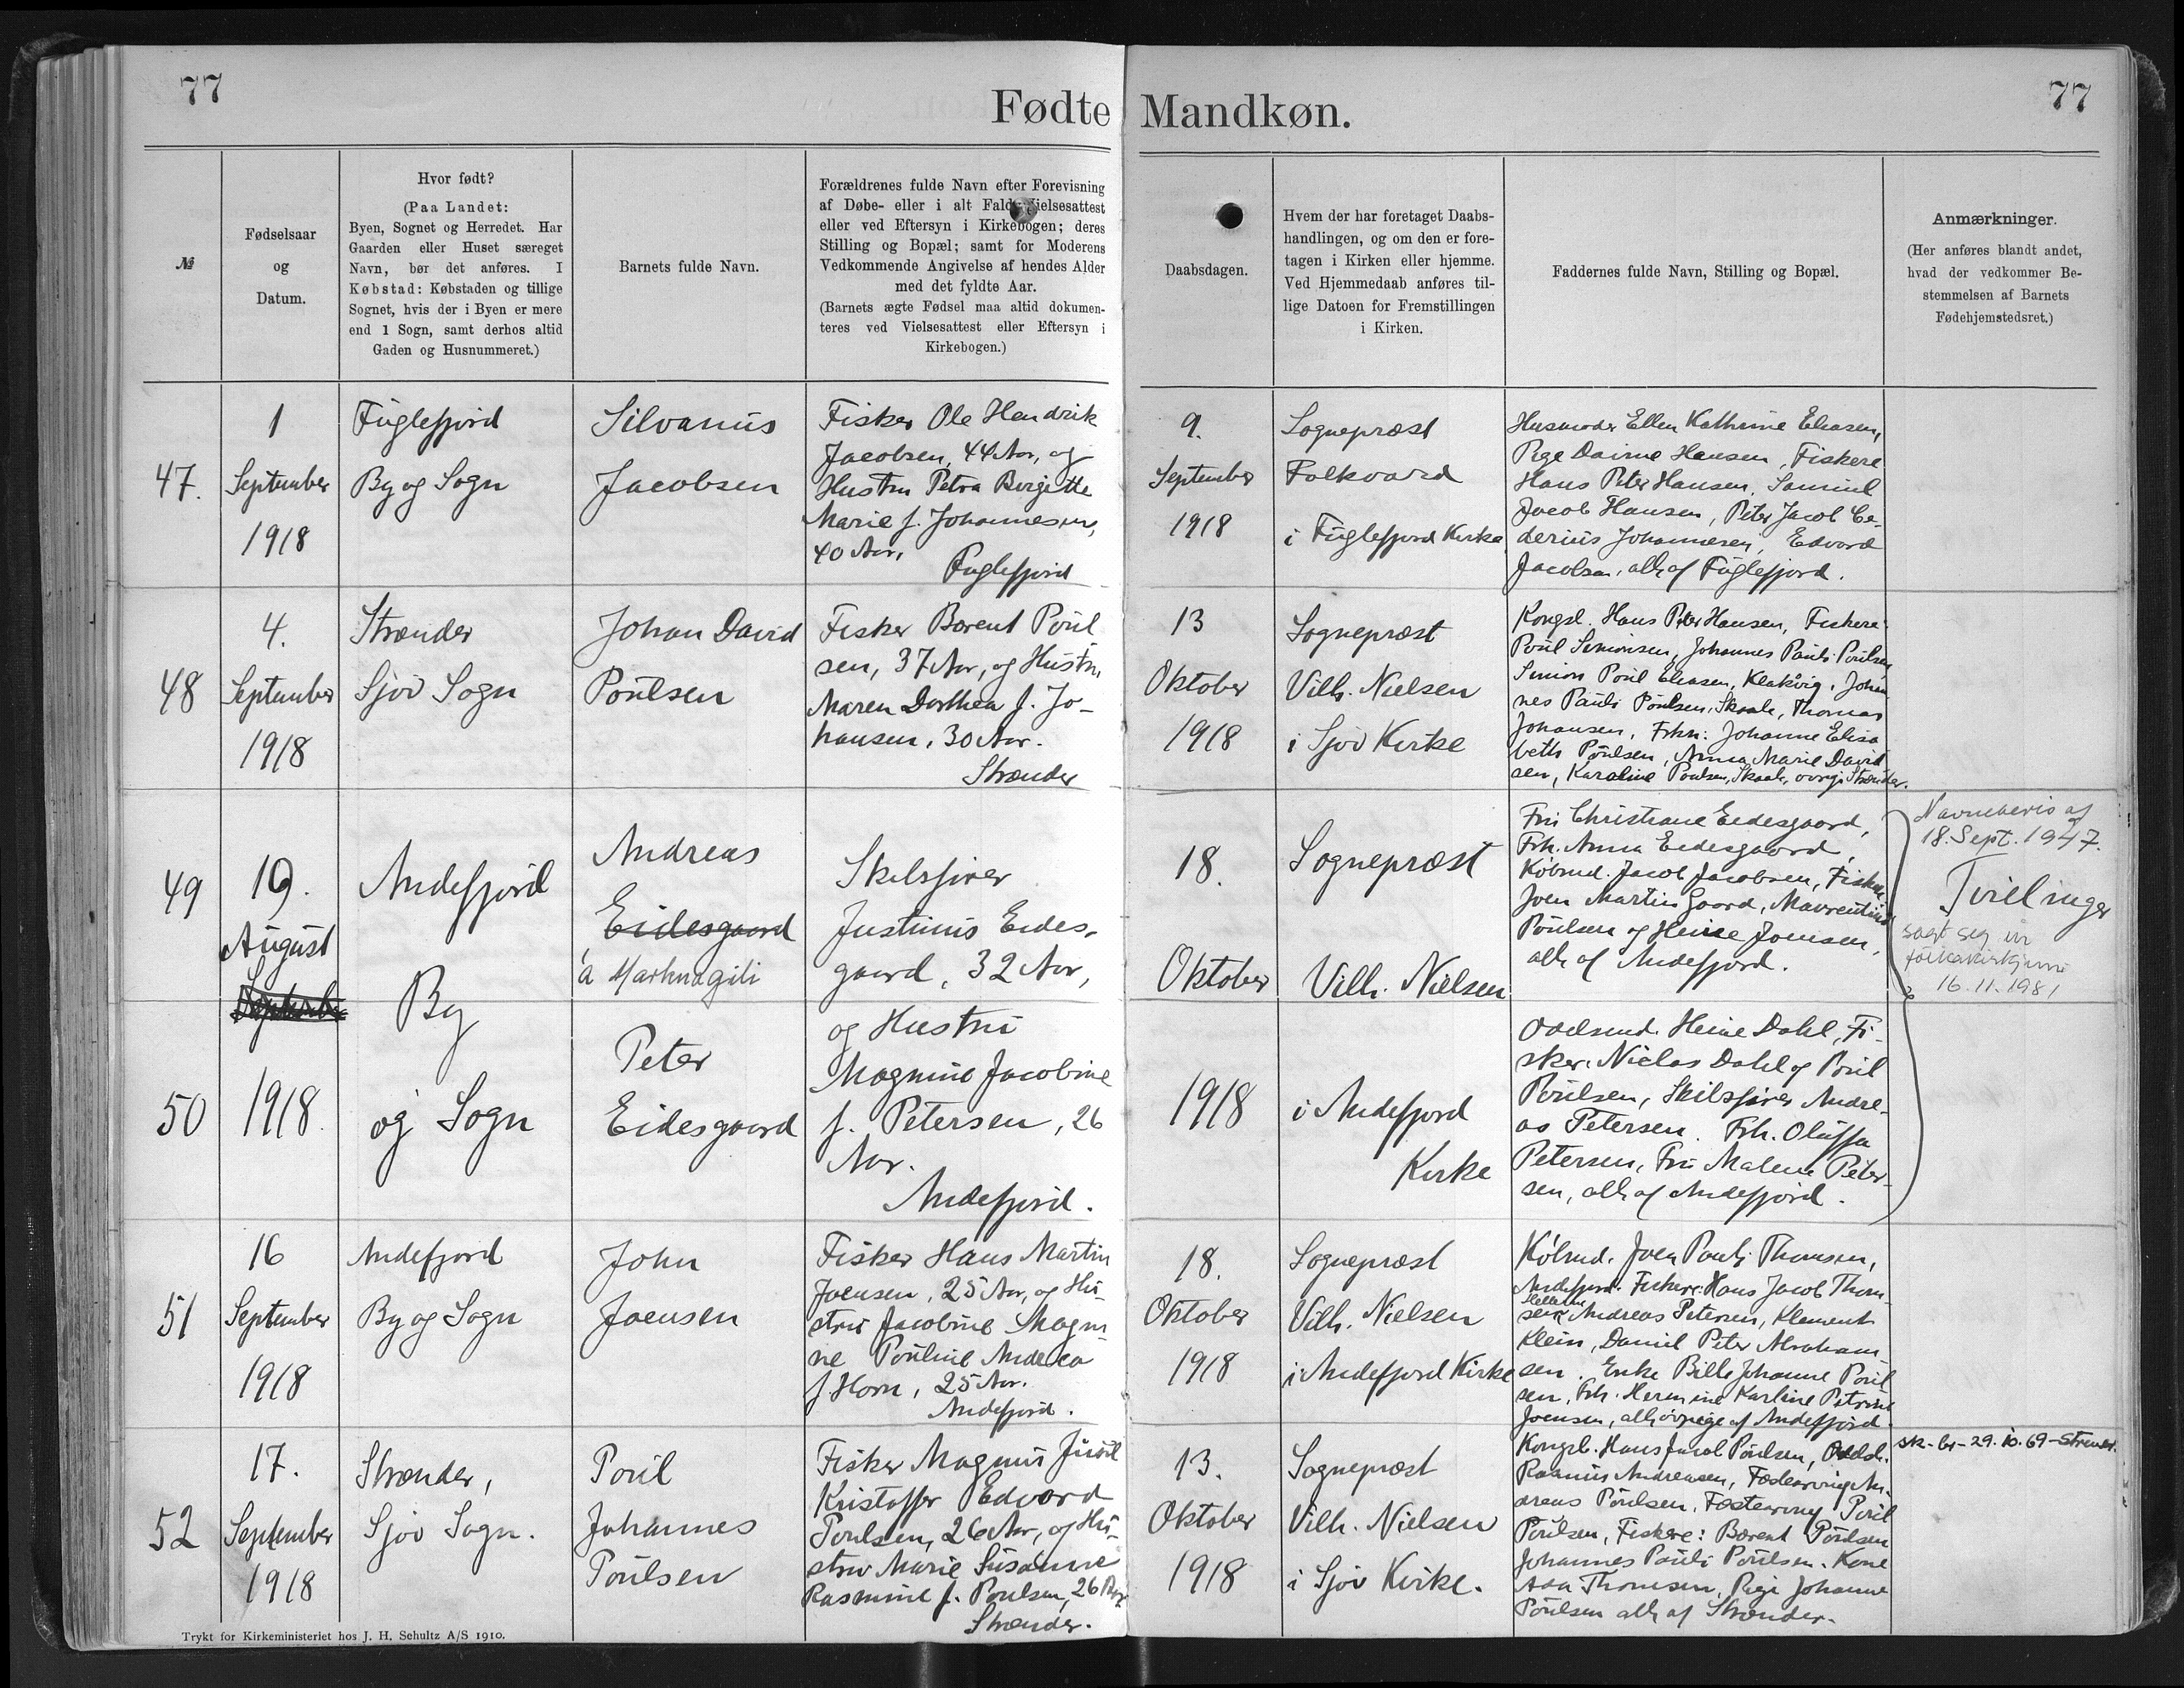 77
Fødte Mandkøn.
77
№
Fødselsaar
og
Datum.
Hvor født?
(Paa Landet:
Byen, Sognet og Herredet. Har
Gaarden eller Huset særeget
Navn, bør det anføres. I
Købstad: Købstaden og tillige
Sognet, hvis der i Byen er mere
end 1 Sogn, samt derhos altid
Gaden og Husnummeret.)
Barnets fulde Navn.
Forældrenes fulde Navn efter Forevisning
af Døbe- eller i alt Fald Vielsesattest
eller ved Eftersyn i Kirkebogen; deres
Stilling og Bopæl; samt for Moderens
Vedkommende Angivelse af hendes Alder
med det fyldte Aar.
(Barnets ægte Fødsel maa altid dokumen-
teres ved Vielsesattest eller Eftersyn i
Kirkebogen.)
Daabsdagen.
Hvem der har foretaget Daabs-
handlingen, og om den er fore-
tagen i Kirken eller hjemme.
Ved Hjemmedaab anføres til-
lige Datoen for Fremstillingen
i Kirken.
Faddernes fulde Navn, Stilling og Bopæl.
Anmærkninger.
(Her anføres blandt andet,
hvad der vedkommer Be-
stemmelsen af Barnets
Fødehjemstedsret.)
47.
1
September
1918
Fuglefjord
By og Sogn
Silvanus
Jacobsen
Fisker Ole Hendrik
Jacobsen, 44 Aar, og
Hustru Petra Birgitte
Marie f. Johannesen,
40 Aar,
Fuglefjord
9.
September
1918
Sognepræst
Folkvard
i Fuglefjord Kirke
Husmoder Ellen Kathrine Eliasen,
Pige Daime Hansen, Fiskere
Hans Peter Hansen, Samuel
Jacob Hansen, Peter Jacob Ce-
derius Johannesen, Edvard
Jacobsen, alle af Fuglefjord.
48
4.
September
1918
Strænder
Sjov Sogn
Johan David
Poulsen
Fisker Barent Poul
sen, 37 Aar, og Hustru
Maren Dorthea f. Jo-
hansen, 30 Aar.
Strænder
13
Oktober
1918
Sognepræst
Vilh. Nielsen
i Sjov Kirke
Kongsb. Hans Peter Hansen, Fiskere
Poul Simonsen, Johannes Pauli Poulsen
Simon Poul Eliasen, Klakvig, Johan
nes Pauli Poulsen, Skaale, Thomas
Johansen, Frkn: Johanne Elisa
beth Poulsen, Anna Marie David
sen, Karoline Poulsen, Skaale, øvrige Strænder.
49
19.
August
September
1918.
Andefjord
By
og Sogn
Andreas
Eidesgaard
á Marknagili
Skibsfører
Justinus Eides-
gaard, 32 Aar,
og Hustru
Magnine Jacobine
f. Petersen, 26
Aar.
Andefjord.
18.
Oktober
1918
Sognepræst
Vilh. Nielsen
i Andefjord
Kirke
Fru Christiane Eidesgaard,
Frk. Anna Eidesgaard,
Købmd. Jacob Jacobsen, Fiskere
Joen Martin Gaard, Maurentius
Poulsen og Heine Joensen,
alle af Andefjord.
Navnebevis af
18. Sept. 1947.
Tvillinger
sagt seg úr
fólkakirkjuni
16.11.1981
50
Peter
Eidesgaard
Odelsmd. Heine Dahl, Fi-
sker. Niclas Dahl og Poul
Poulsen, Skibsfører Andre-
as Petersen. Frk. Oluffa
Petersen, Fru Malene Peter-
sen, alle af Andefjord.
51
16
September
1918
Andefjord
By og Sogn
John
Joensen
Fisker Hans Martin
Joensen, 25 Aar, og Hu-
stru Jacobine Magni
ne Pouline Andrea
f. Horn, 25 Aar.
Andefjord.
18.
Oktober
1918
Sognepræst
Vilh. Nielsen
i Andefjord Kirke
Købmd. Joen Pauli Thomsen,
Andefjord. Fiskere: Hans Jacob Thom-
sen Andreas Petersen, Klement
Klein, Daniel Peter Abraham-
sen. Enke Bille Johanne Poul
sen, Frk. Hermine Karline Petrine
Joensen, alle øvrige af Andefjord.
52
17.
September
1918
Strænder,
Sjov Sogn.
Poul
Johannes
Poulsen
Fisker Magnus Juul
Kristoffer Edvard
Poulsen, 26 Aar, og Hu-
stru Marie Susanne
Rasmine f. Poulsen, 26 Aar.
Strænder.
13.
Oktober
1918
Sognepræst
Vilh. Nielsen
i Sjov Kirke.
Kongsb. Hans Jacob Poulsen, Odelsb.
Rasmus Andreasen, An-
dreas Poulsen, Poul
Poulsen, Fiskere: Barent Poulsen
Johannes Pauli Poulsen. Kone
Ada Thomsen, Pige Johanne
Poulsen alle af Strænder.
sk-br-29.10.69-Strend.
Trykt for Kirkeministeriet hos J. H. Schultz A/S 1910.